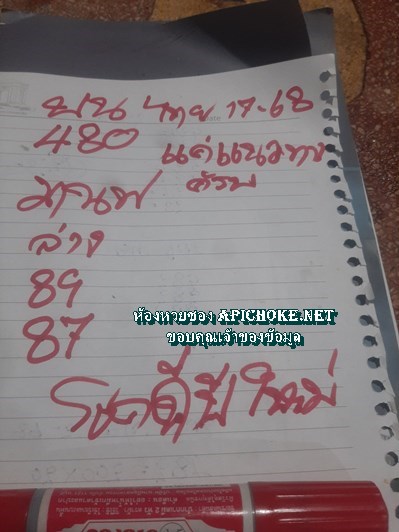 บน ไทย 17-68
480 แค่แนวทาง
ครับ
ล่าง
89
ห้องหวยซอง APICHOKE.NET
ขอบคุณเจ้าของข้อมูล
87
โชคดีปีใหม่